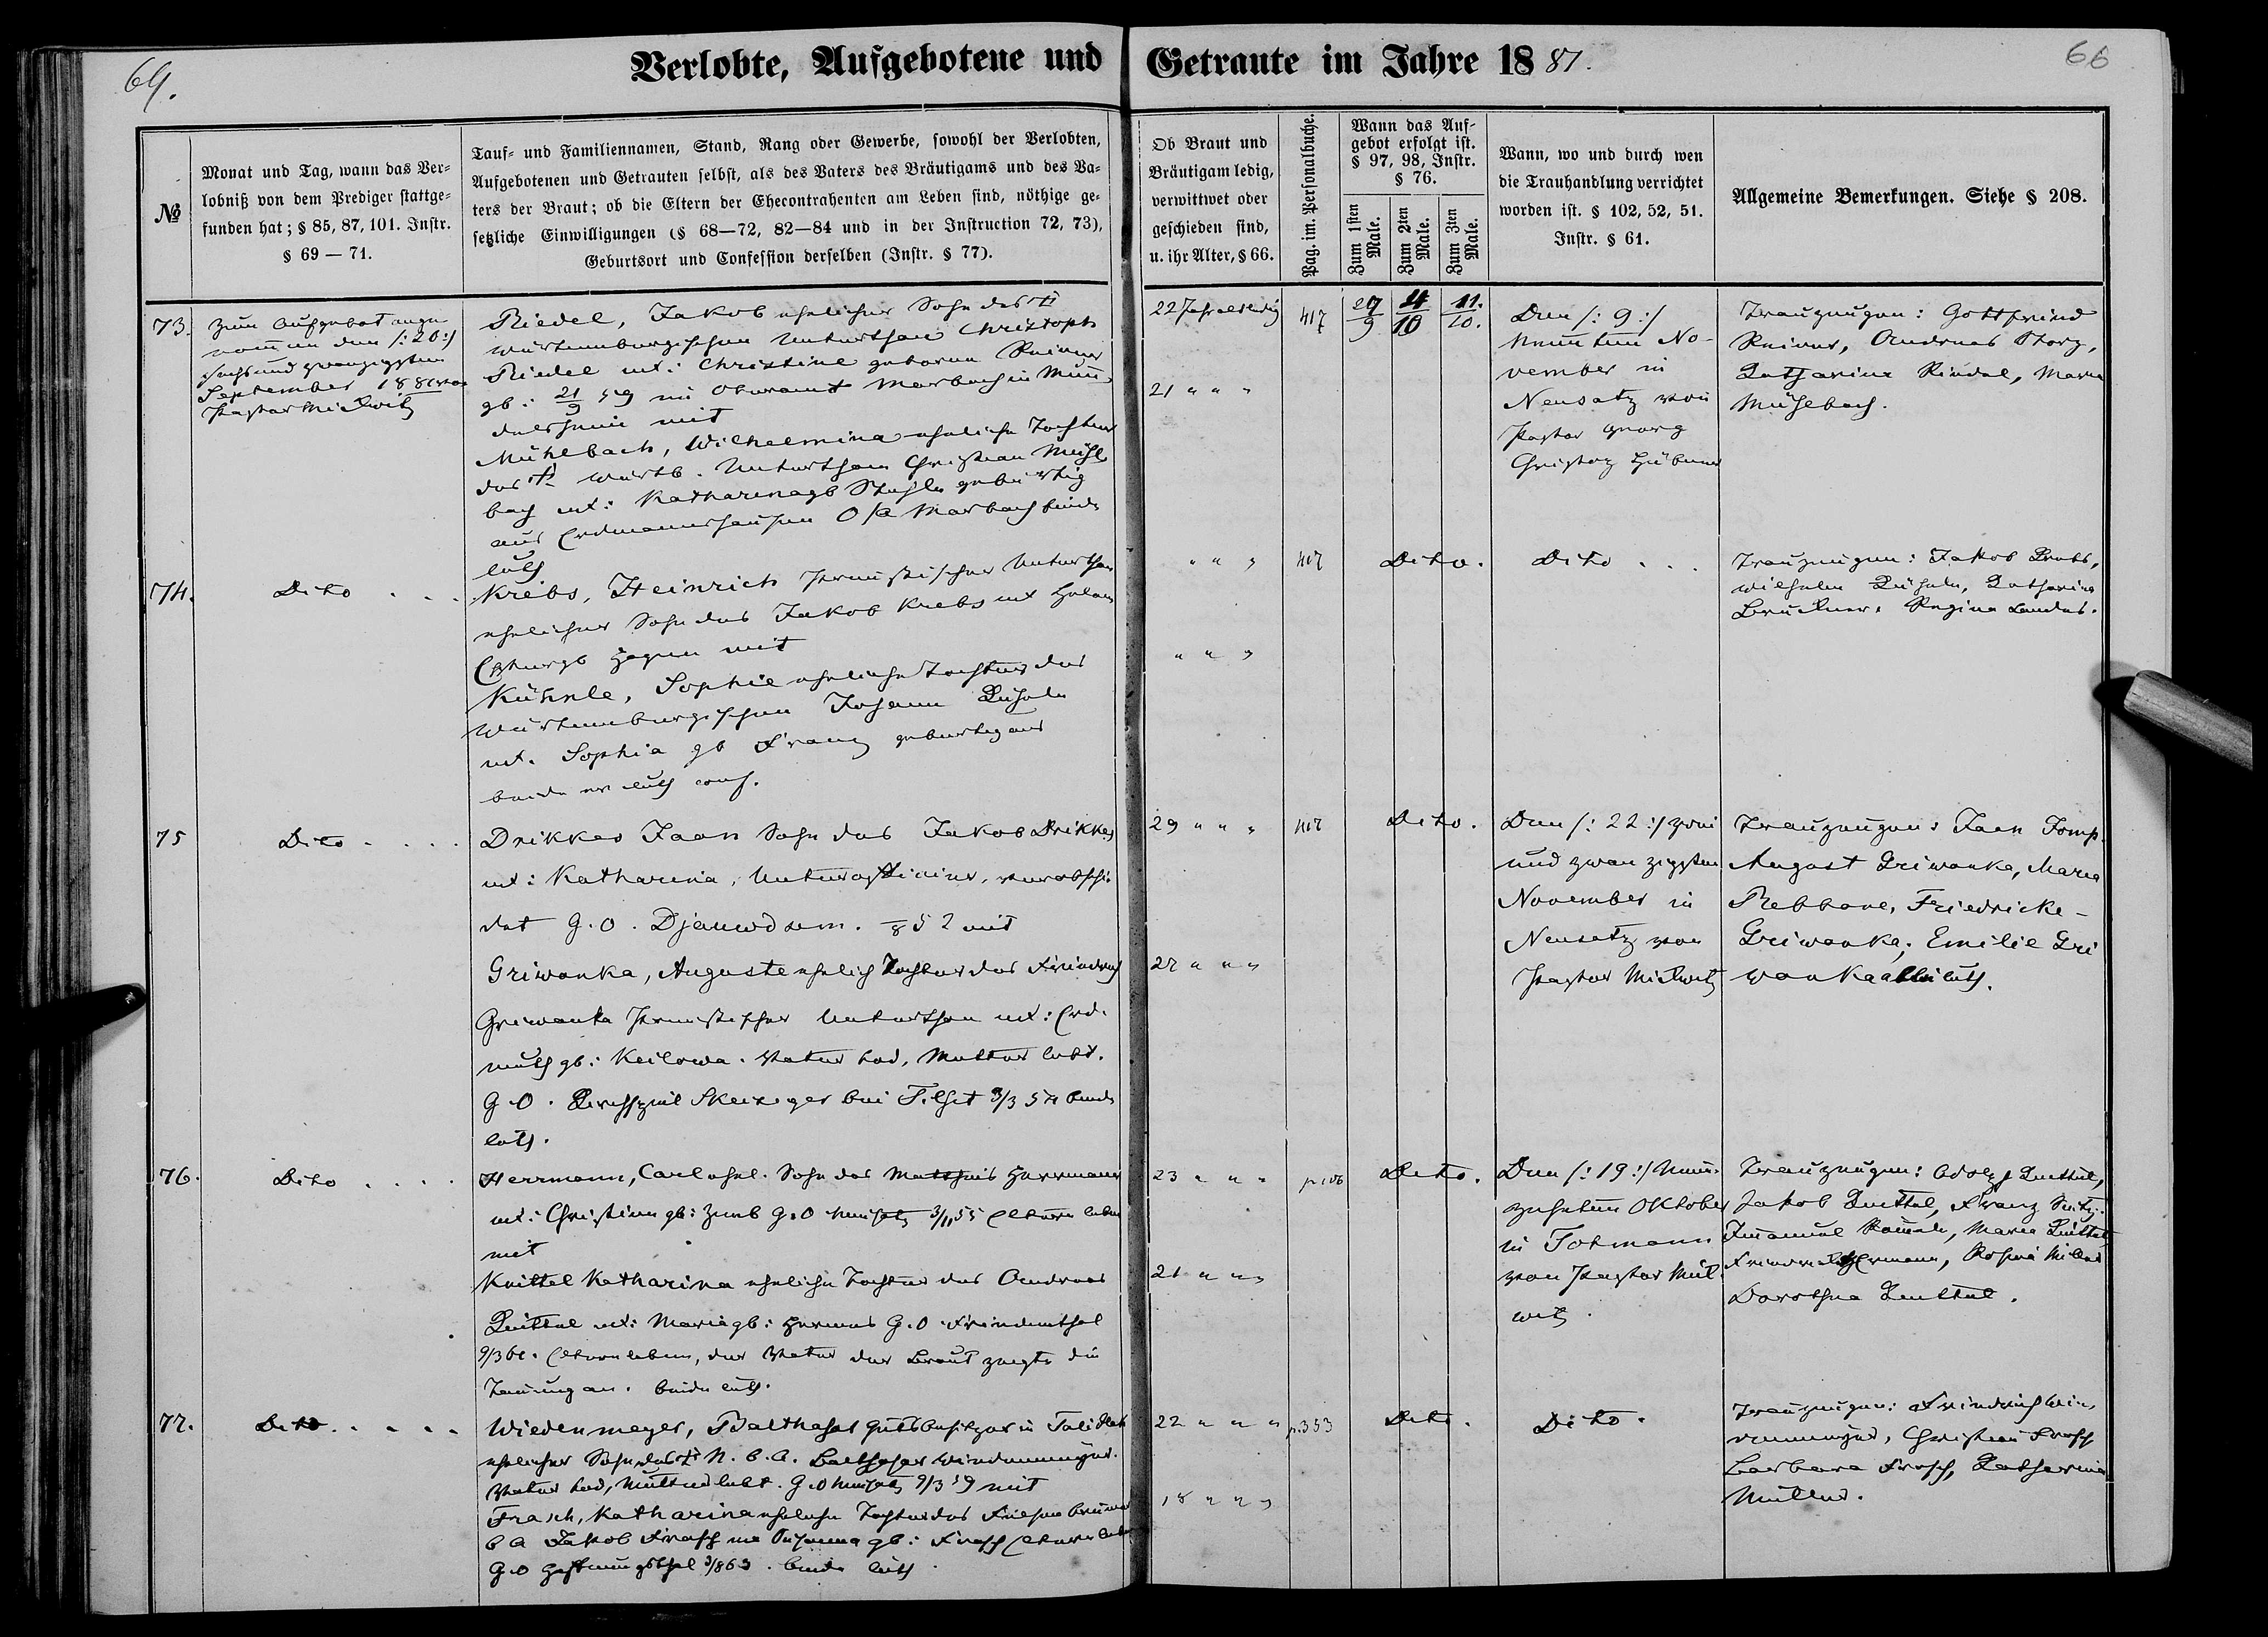 Verlobte, Aufgebotene und Getraute im Jahre 1881.
69.
66
№
Monat und Tag, wann das Ver-
lobniß von dem Prediger stattge-
funden hat; § 85, 87, 101. Instr.
§ 69 — 71.
Tauf- und Familiennamen, Stand, Rang oder Gewerbe, sowohl der Verlobten,
Aufgebotenen und Getrauten selbst, als des Vaters des Bräutigams und des Va-
ters der Braut; ob die Eltern der Ehecontrahenten am Leben sind, nöthige ge-
setzliche Einwilligungen (§ 68—72, 82—84 und in der Instruction 72, 73),
Geburtsort und Confession derselben (Instr. § 77).
Ob Braut und
Bräutigam ledig,
verwittwet oder
geschieden sind,
u. ihr Alter, § 66.
Pag. im. Personalbuche.
Wann das Auf-
gebot erfolgt ist.
§ 97, 98, Instr.
§ 76.
Zum 1sten
Male.
Zum 2ten
Male.
Zum 3ten
Male.
Wann, wo und durch wen
die Trauhandlung verrichtet
worden ist. § 102, 52, 51.
Instr. § 61.
Allgemeine Bemerkungen. Siehe § 208.
73.
zum Aufgebot ange
nommen den /: 26 :/
sechsundzwanzigsten
September 1881 von
Pastor Mickwitz
Riedel, Jakob ehelicher Sohn des
würtembergischen Unterthan Christoph
Riedel ux: Christine geborene Reiner
gb: 21/9 59 im Oberamt Marbach in
mit
Mühlbach, Wilhelmina eheliche Tochter
des würtb. Unterthan Christian Mühl
bach ux: Katharina gb Stähle gebürtig
aus Erdmannhausen O/A Marbach beide
luth
22 Jahr alt ledig
21 " " "
417
27/9 4/10 11./10.
Den /: 9 :/
neunten No-
vember in
Neusatz von
Pastor Georg
Christoph Hübner
Trauzeugen: Gottfried
Reiner, Andreas Storz,
Katharina Riedel, Maria
Mühlbach.
74.
Dito . . .
Krebs, Heinrich Preussischer Unterthan
ehelicher Sohn des Jakob Krebs ux Helene
Hagen mit
Kühnle, Sophie eheliche Tochter des
Würtembergischen Johann Kühnle
ux. Sophia gb Franz gebürtig aus
beide ev luth conf.
" " "
" " "
417
Dito.
Dito . . .
Trauzeugen: Jakob Krebs,
Wilhelm Kühnle, Katharina
Bruckner, Regina Landes.
75
Dito . . . .
Drikkes Jaan Sohn des Jakob Drikkes
ux: Katharina, Unteroffizier, verabschie
det G. O. 8 52 mit
Griwanka, Auguste ehelich Tochter des Friedrich
Griwanka Preussischer Unterthan ux: Erd-
muth gb: Keilowa. Vater tod, Mutter lebt.
G. O. Kirchspiel bei Tilsit 3/3 54 beide
luth.
29 " " "
27 " " "
417
Dito.
Den /: 22 :/ zwei
und zwanzigsten
November in
Neusatz von
Pastor Mickwitz
Trauzeugen: Jaan
August Griwanka, Maria
Rebbane, Friedricke-
Griwanka, Emilie Gri
wanka alle luth.
76.
Dito . . . .
Herrmann, Carl ehel. Sohn des Matthias Herrmann
ux: Christine gb: G. O Neusatz 3/11 55 Eltern leben
mit
Knittel Katharina eheliche Tochter des Andreas
Knittel ux: Maria gb: Hermes G. O. Friedenthal
9/3 60. Eltern leben, der Vater der Braut zeigte die
Trauung an. beide luth.
23 " " "
21 " " "
Dito.
Den /: 19 :/ Neun-
zehnten Oktober
in Totmann
von Pastor Mick-
witz.
Trauzeugen: Adolf Knittel,
Jakob Knittel, Franz
Immanuel, Maria Knittel,
Friedrich Hermann, Rosina Miller
Dorothea Knittel.
77.
Dito . . . . .
Wiedenmeyer, Balthasar Gutsbesitzer in
ehelicher Sohn des N. b. A. Balthasar Wiedenmeyer.
Vater tod, Mutter lebt. G. O Neusatz 9/3 59 mit
Frasch, Katharina eheliche Tochter des
b A Jakob Frasch ux Susanna gb: Frasch Eltern leben
G. O Hoffnungsthal 3/8 63. beide luth
22 " " "
18 " " "
p. 353
Dito.
Dito.
Trauzeugen: Friedrich Wie
denmeyer, Christian Frasch
Barbara Frasch, Katharina
Müller.